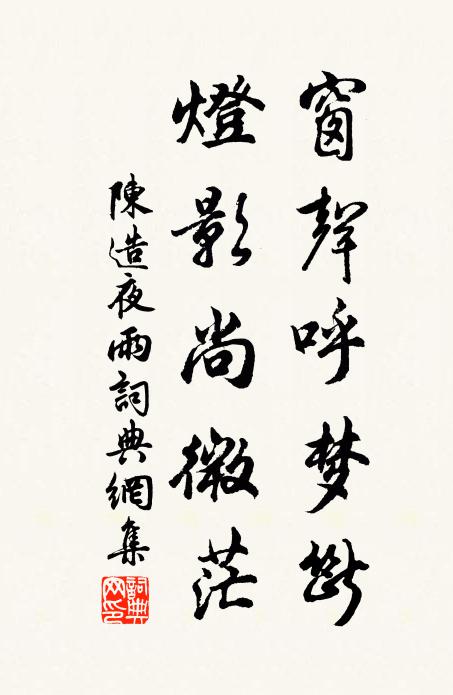 窗聲呼梦斷
燈影尚微茫
陳造夜雨詞典網集
詞典网印